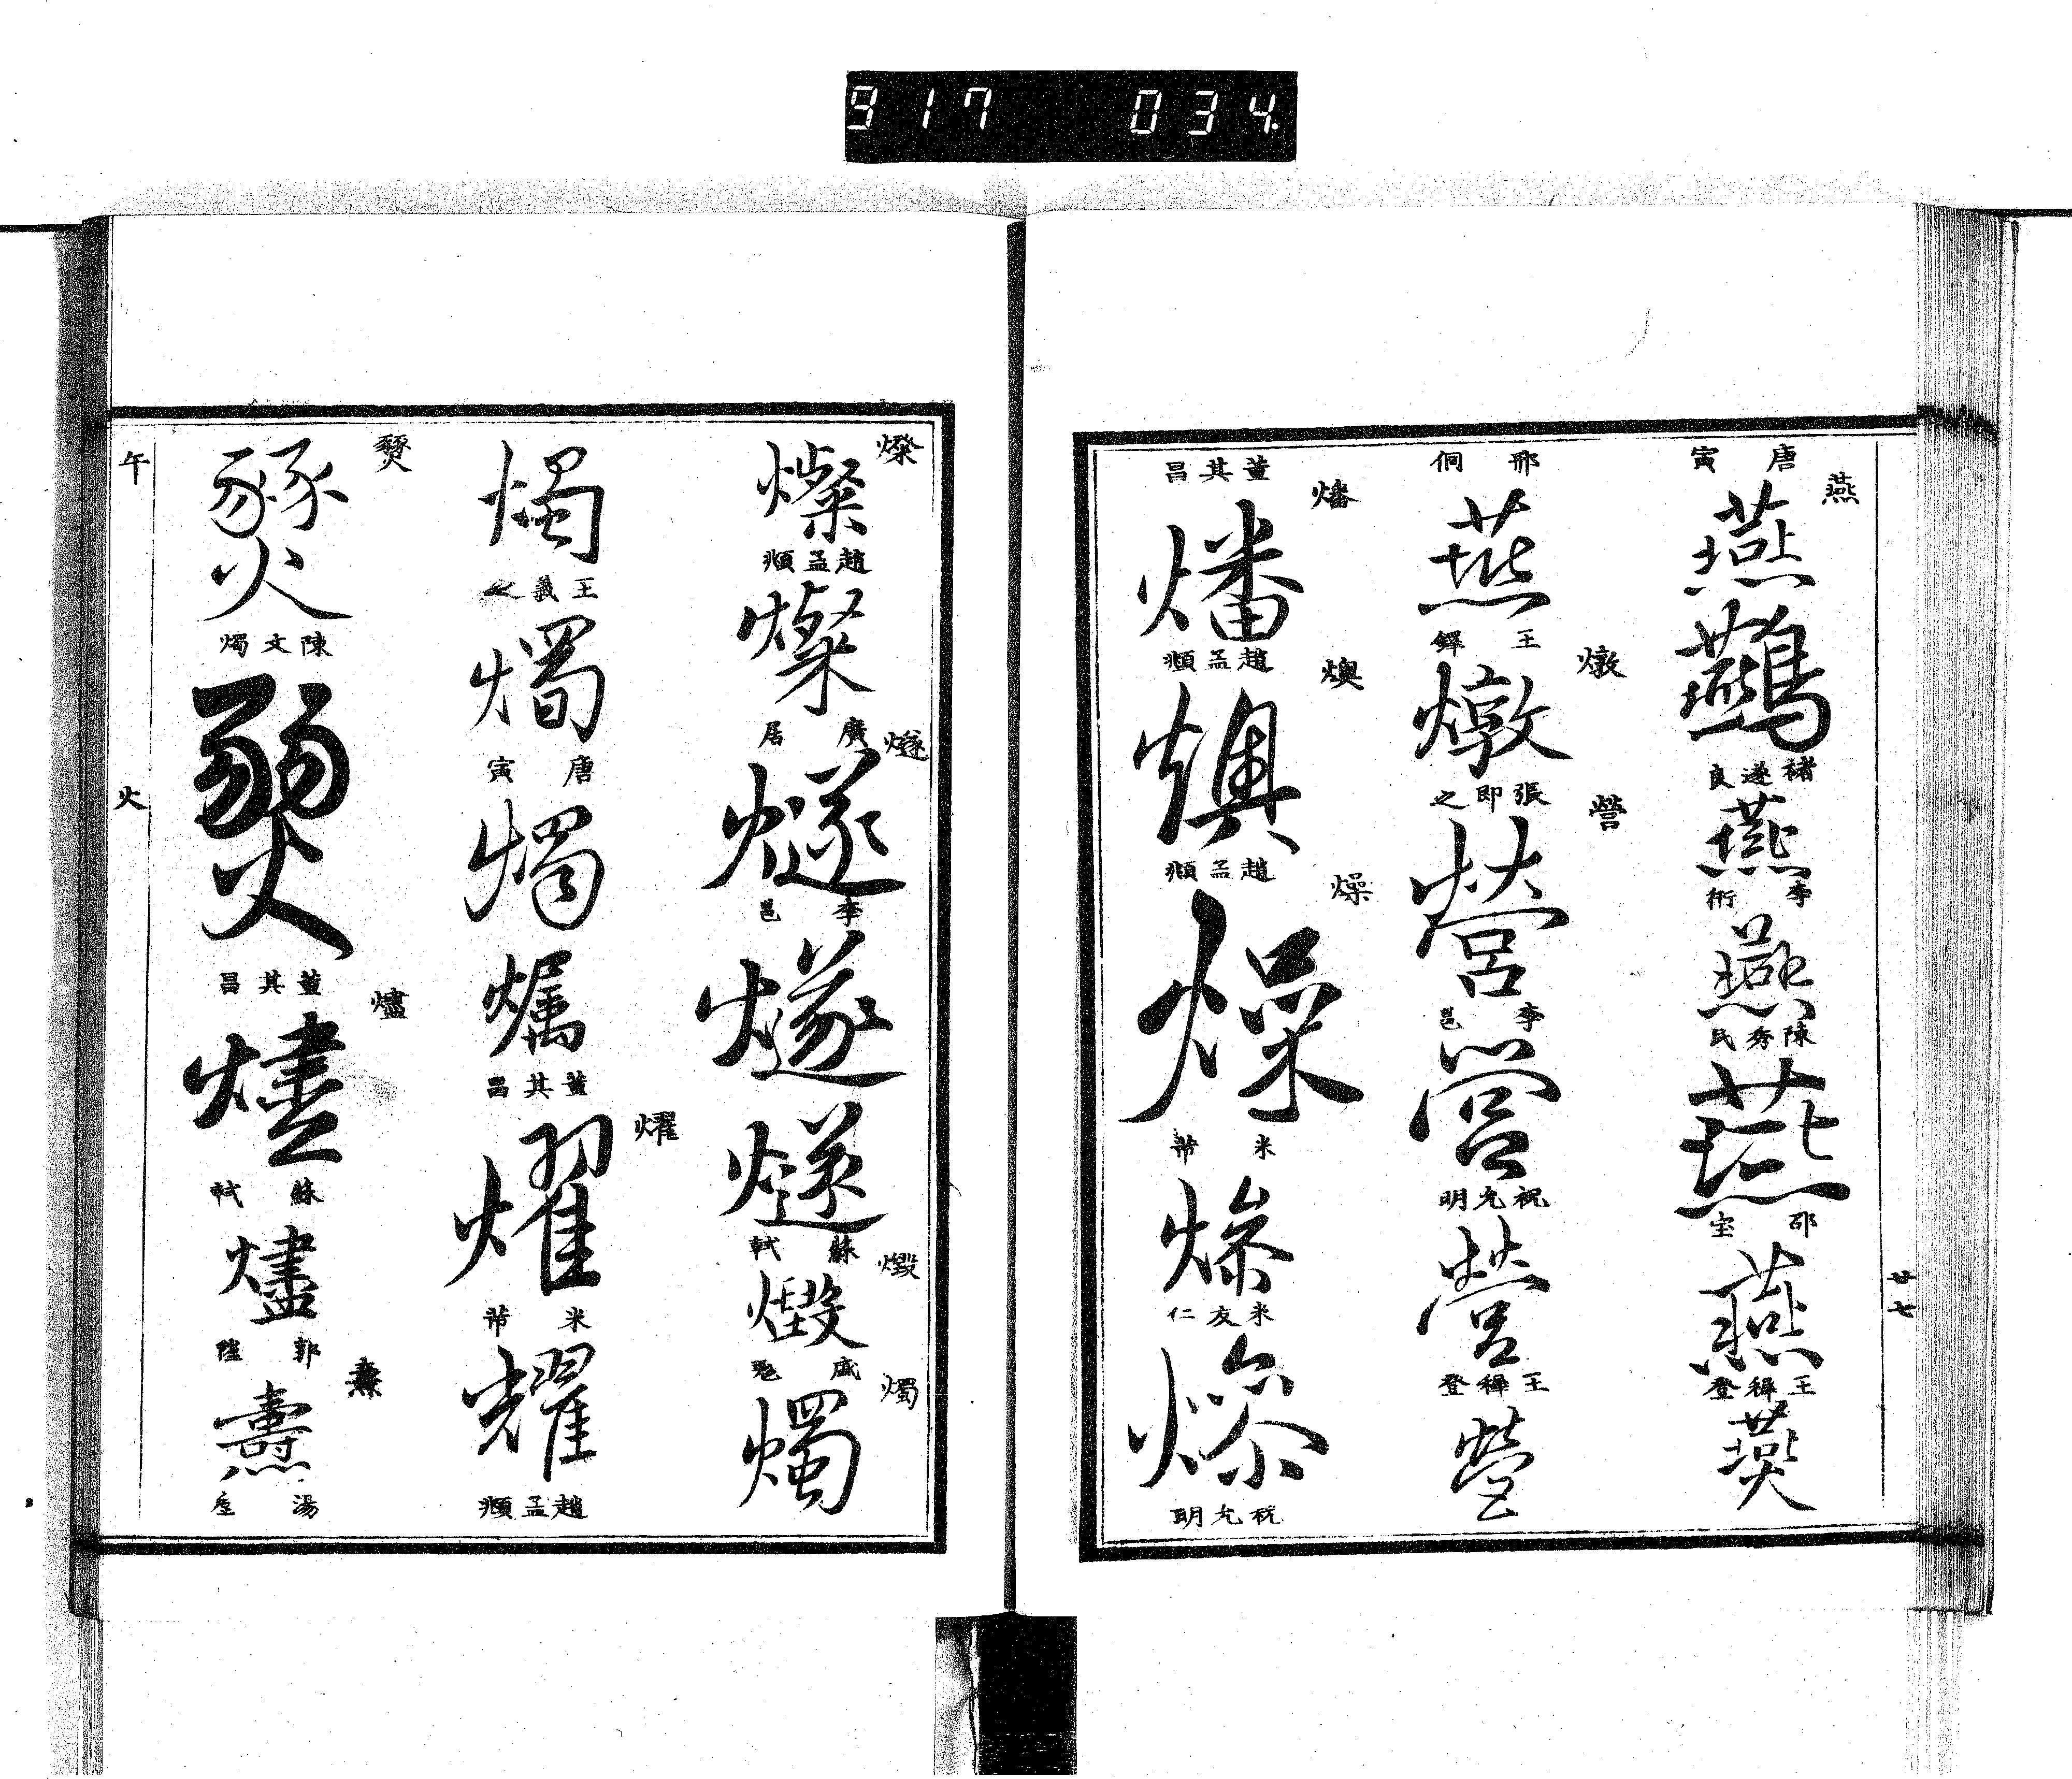 917 034
燕
唐寅
燕
鷰
褚遂良
燕
李衎
燕
陳秀民
燕
邵宝
燕
王穉登
燕
邢侗
燕
王鐸
燉
燉
張即之
營
營
李邕
營
祝允明
營
王穉登
營
燔
董其昌
燔
趙孟頫
燠
燠
趙孟頫
燥
燥
米芾
燥
米友仁
燥
祝允明
廿七
燦
燦
趙孟頫
燦
康里
燧
燧
李邕
燧
燧
蘇軾
燬
燬
燭
燭
燭
王羲之
燭
唐寅
燭
爥
董其昌
燿
燿
米芾
耀
趙孟頫
燹
燹
陳文燭
燹
董其昌
燼
燼
蘇軾
燼
郭
燾
燾
湯
午
火